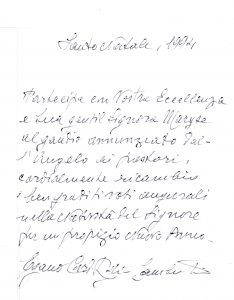 Santo Natale, 1994
Partecipe con Vostra Eccellenza
e Sua gentil Signora Maryse
al gaudio annunziato dal-
l'Angelo ai pastori,
cordialmente ricambio
i ben graditi voti augurali
nella Natività del Signore
per un propizio Nuovo Anno.